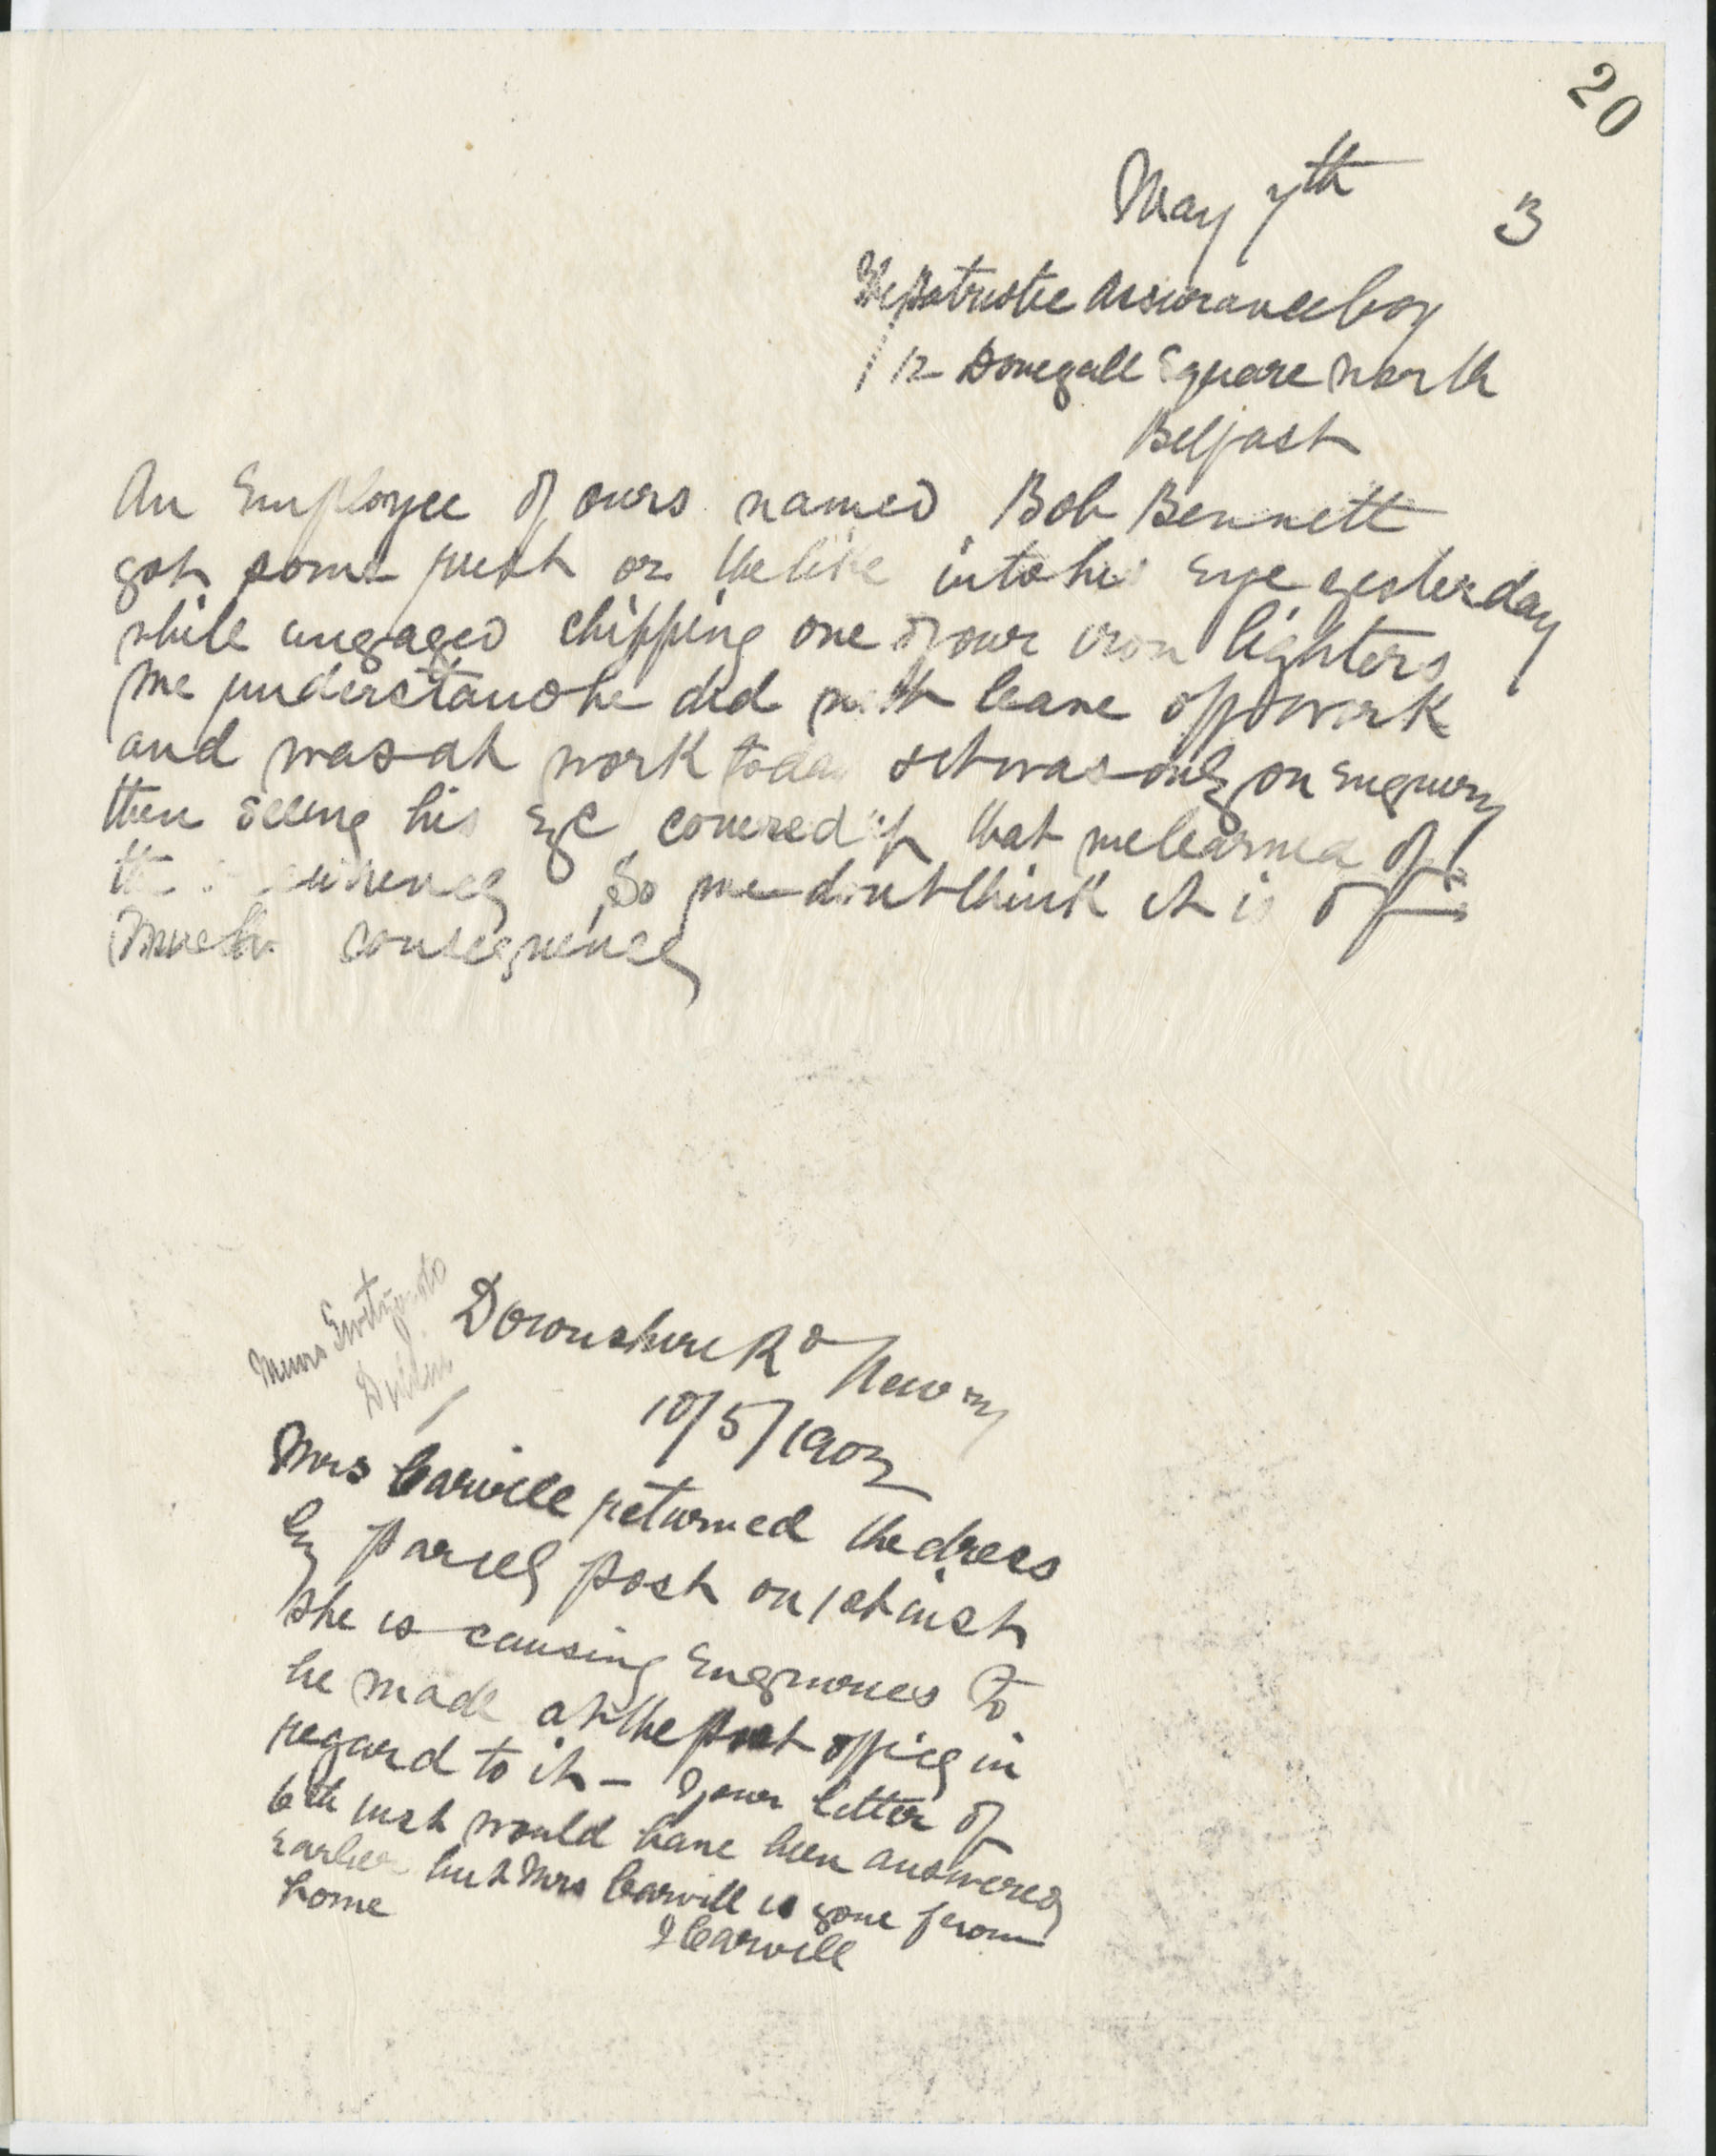 20
May 7th 3
The Patriotic Assurance Coy
12 Donegall Square North
Belfast
An Employee of ours named Bob Bennett
got some rust or the like into his Eye yesterday
while engaged chipping one of our iron lighters
We understand he did not leave off work
and was at work today & it was only on Enquiry
then seeing his Eye covered up that we learned of
the So we dont think it is of
much consequence
Messrs
Dublin
Downshire Rd Newry
10/5/1903
Mrs Carvill returned the dress
by parcel post on 1st inst
She is causing Enquiries to
be made at the post office in
regard to it - Your letter of
6th inst would have been answered
Earlier but Mrs Carvill is gone from
home
J Carvill